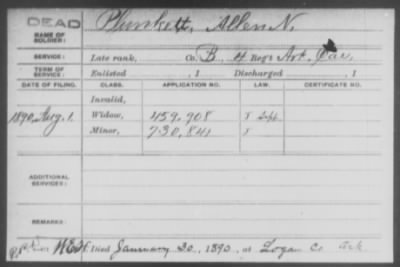 DEAD
NAME OF SOLDIER: Plunkett, Allen N.
SERVICE: Late rank, Co. B, 4 Reg't Ark. Cav.
TERM OF SERVICE: Enlisted , 1 Discharged , 1
DATE OF FILING. CLASS. APPLICATION NO. LAW. CERTIFICATE NO.
Invalid,
1890, Aug. 1. Widow, 459,908
Minor, 730,841
ADDITIONAL SERVICES:
REMARKS:
Died January 20, 1890, at Logan Co Ark